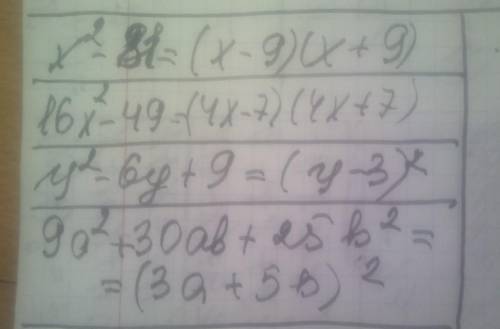 x² - 81 = (x - 9)(x + 9)
16x² - 49 = (4x - 7)(4x + 7)
y² - 6y + 9 = (y - 3)²
9a² + 30ab + 25b² =
= (3a + 5b)²